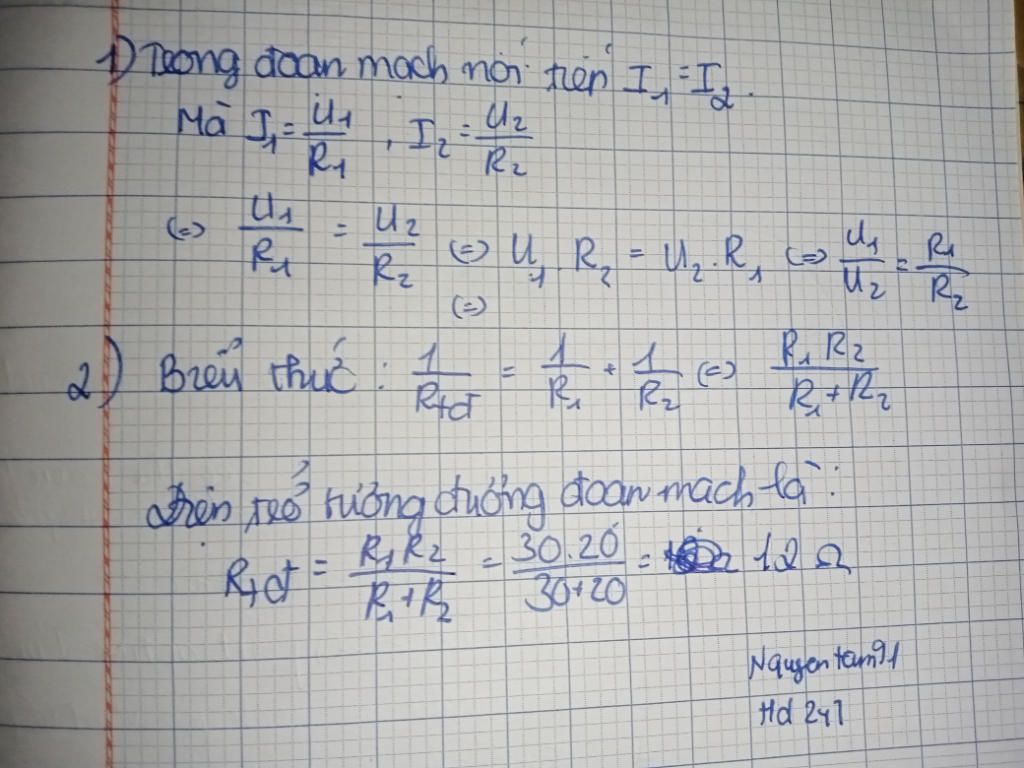 1) Trong đoạn mạch nối tiếp I₁ = I₂.
Mà I₁ = U₁/R₁ , I₂ = U₂/R₂
(=) U₁/R₁ = U₂/R₂ (=) U₁.R₂ = U₂.R₁ (=) U₁/U₂ = R₁/R₂
(=)
2) Biểu thức : 1/Rtđ = 1/R₁ + 1/R₂ (=) R₁R₂/R₁+R₂
Điện trở tương đương đoạn mạch là :
Rtđ = R₁R₂/R₁+R₂ = 30.20/30+20 = 12 Ω
Nguyentam91
Hd 247